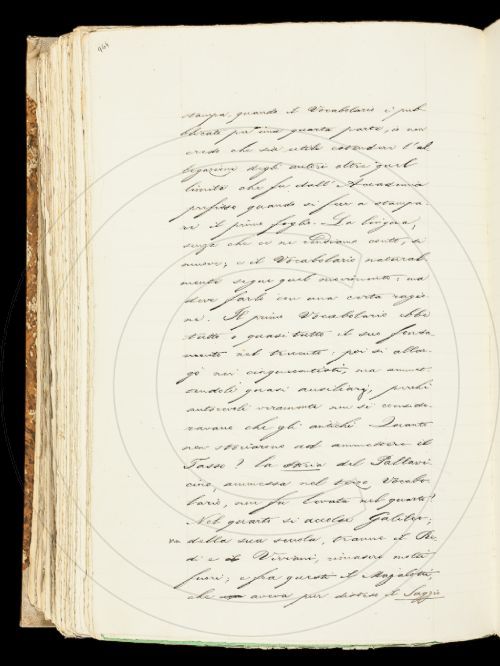 964
stampa, quando il Vocabolario è pub-
blicato per una quarta parte, io non
credo che sia utile estender l'al-
legazione degli autori oltre quel
limite che fu dall'Accademia
prefisso quando si fu a stampa-
re il primo foglio. La lingua,
senza che ce ne rendiamo conto, si
muove; e il Vocabolario natural-
mente segue quel movimento: ma
deve farlo con una certa ragio-
ne. Il primo Vocabolario ebbe
tutto o quasi tutto il suo fonda-
mento nel trecento; poi si allar-
gò nei cinquecentisti, ma ammet-
tendoli quasi ausiliarj, perchè
autorevoli veramente non si conside-
ravano che gli antichi. Quanto
non stentarono ad ammettere il
Tasso? la storia del Pallavi-
cino, ammessa nel terzo Vocabo-
lario, non fu levata nel quarto?
Nel quarto si accolse Galileo;
ma della sua scuola, tranne il Re-
di e il Viviani, rimasero molti
fuori; e fra questi il Magalotti,
che aveva pur disteso il Saggio